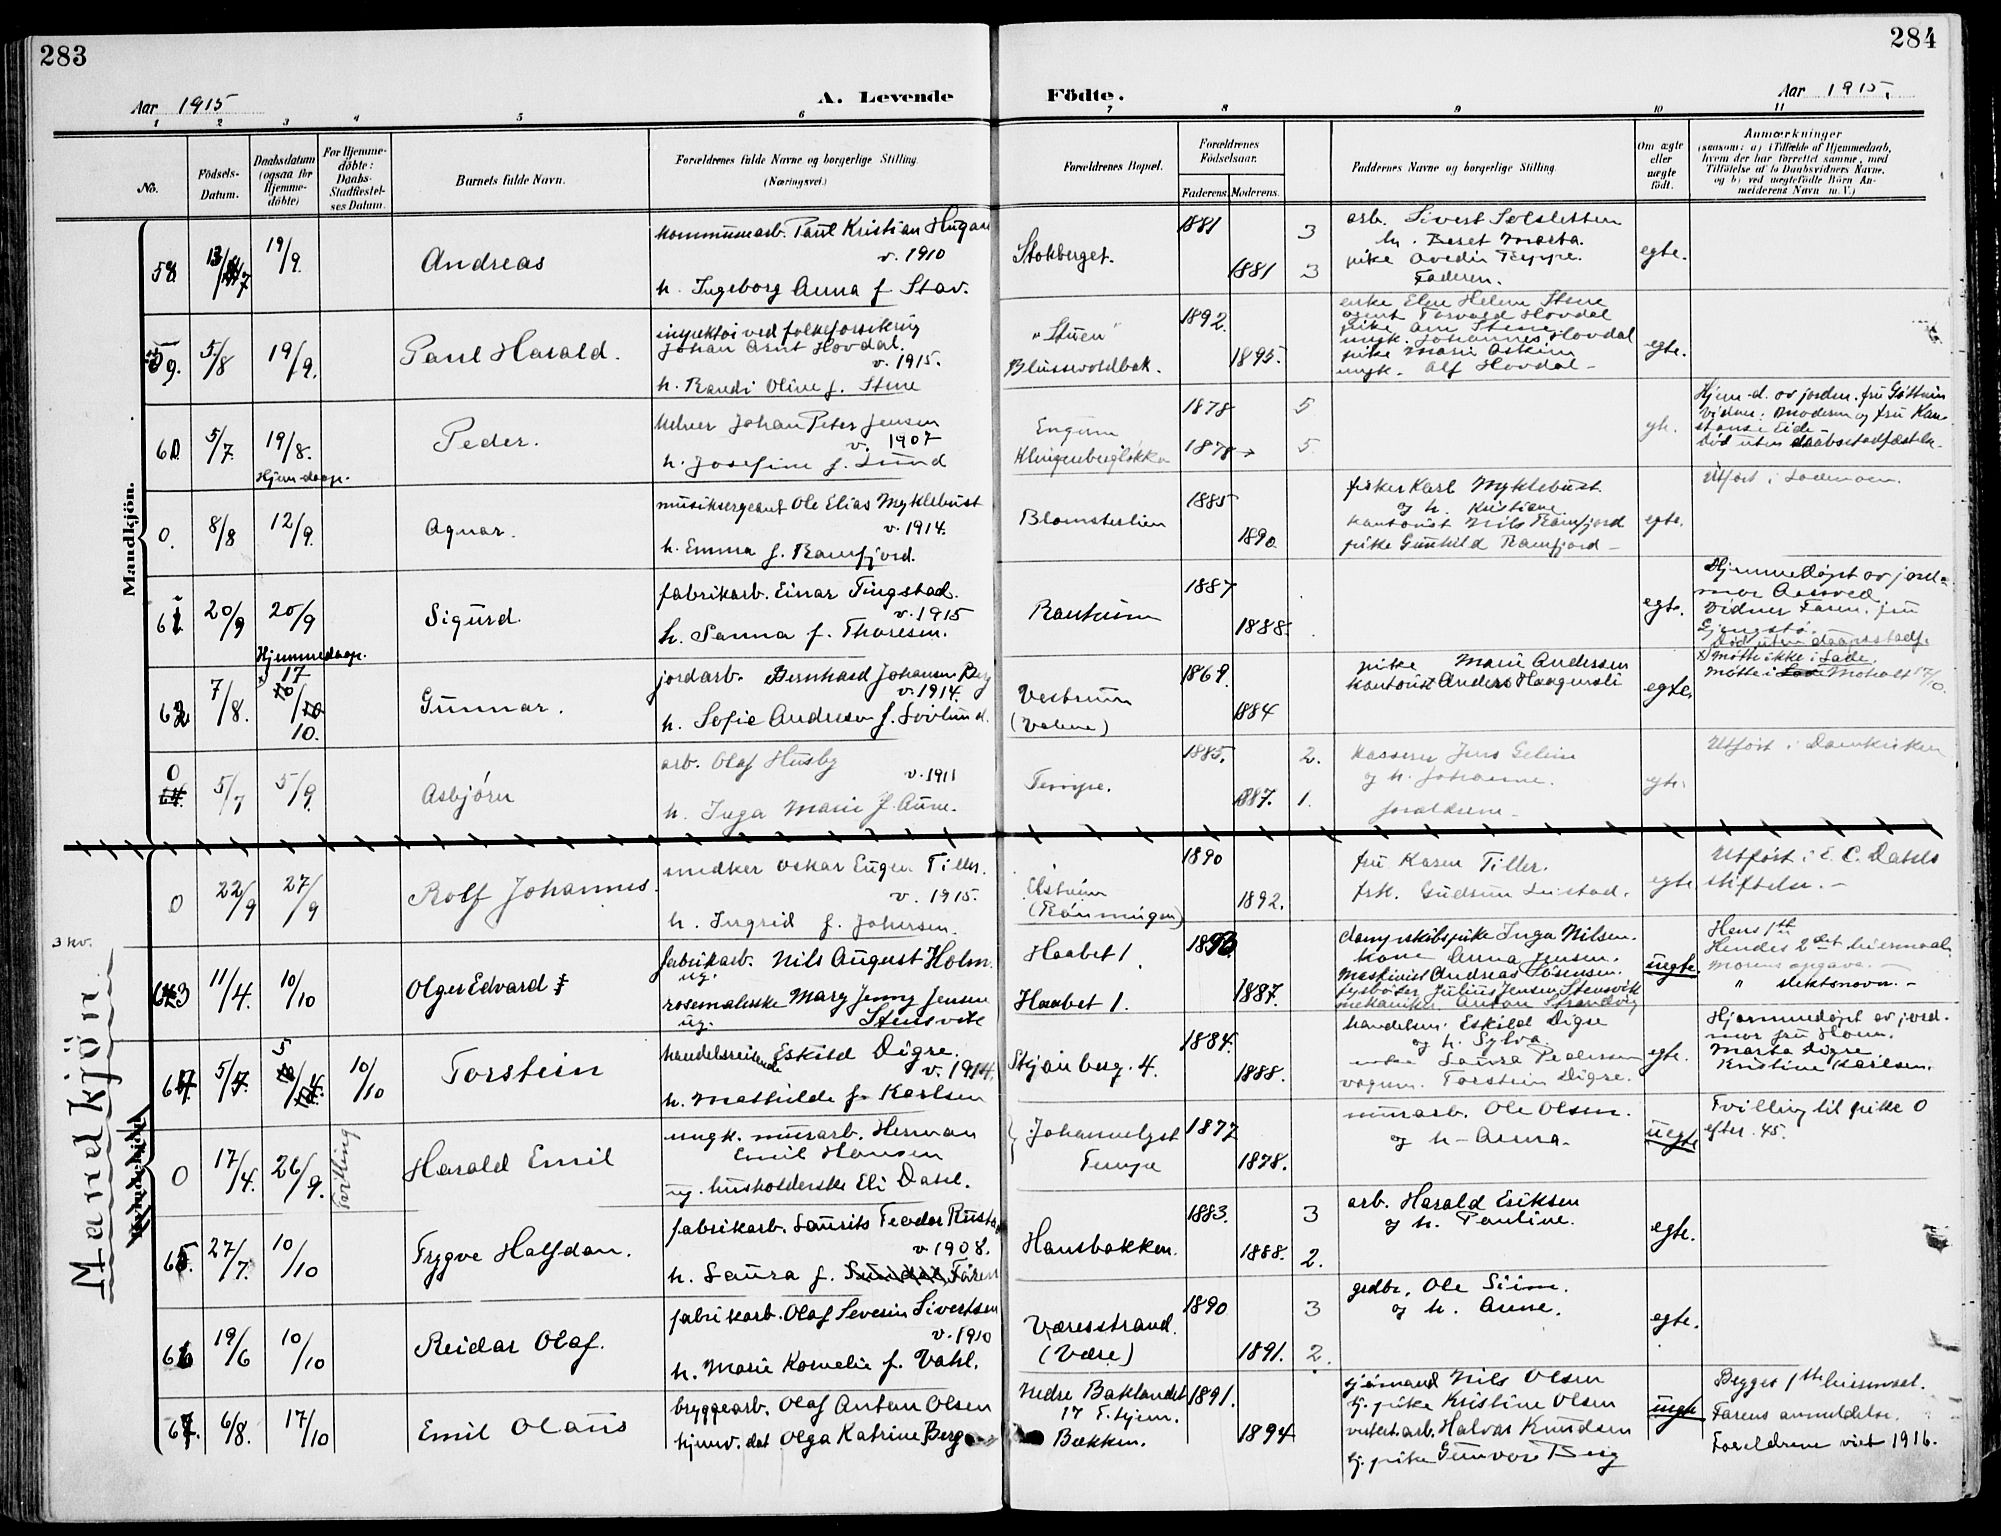 283
284
Aar 1915
A. Levende
Födte.
Aar 1915.
1 2 3 4 5 6 7 8 9 10 11
No.
Födsels-
Datum.
Daabsdatum
(ogsaa for
Hjemme-
döbte)
For Hjemme-
döbte:
Daabs-
Stadfæstel-
ses Datum.
Barnets fulde Navn.
Forældrenes fulde Navne og borgerlige Stilling.
(Næringsvei.)
Forældrenes Bopæl.
Forældrenes
Födselsaar.
Faderens. Moderens.
Faddernes Navne og borgerlige Stilling.
Om ægte
eller
uægte
födt.
Anmærkninger
(saasom: a) i Tilfælde af Hjemmedaab,
hvem der har forrettet samme, med
Tilföielse af to Daabsvidners Navne,
og b) ved uægtefödte Börn An-
melderens Navn m. V.)
Mandkjön.
58 19/9. Andreas
kommunearb. Paul Kristian Hugaas
v. 1910
h. Ingeborg Anna f. Stav.
Stokberget.
1881 3
1881 3
arb. Sivert Solsletten
h. Beret Marta.
pike Avedia Teppe.
Faderen.
egte.
59. 5/8 19/9. Paul Harald.
inspektør ved folkeforsikring
Johan Arnt Hovdal.
v. 1915.
h. Randi Oline f. Stene
"Stuen"
Blussevoldbak.
1892.
1895.
enke Elen Helene Stene
agent Torvald Hovdal
pike Stene.
ungk. Johannes Hovdal
pike Marie Askim
ungk. Alf Hovdal -
egte.
60 5/7. 19/8. Hjem-daap. Peder.
Johan Peter Jensen
v. 1907
h. Josefine f. Lund
Klingenbergløkka
1878 5
1878 5.
Hjem-d. av jordm. fru
Vidner: Moderen og fru Kon-
stanse Eide -
Død uten daabsstadfæstelse.
0. 8/8 12/9. Agnar.
musiksergeant Ole Elias Myklebust
v. 1914.
h. Emma f. Ramfjord.
Blomsterlien
1885
1890.
fisker Karl Myklebust.
og h. Kristiane.
kantorist Nils Ramfjord
pike Gunhild Ramfjord -
egte.
Utført i Lademoen.
61 20/9 20/9 Hjemmedaap. Sigurd.
fabrikarb. Einar Tingstad.
v. 1915
h. Sanna f. Thoresen.
Ranheim
1887
1888.
egte.
Hjemmedøpt av jord-
mor Aasved.
Vidner Faren, fru
Død uten daapsstadf.
62 7/8. 17/10. Gunnar.
jordarb. Bernhard Johansen Berg
v. 1914.
h. Sofie Andersen f. Sørlund.
Vestrum
(Valene)
1869.
1884
pike Marie Andersen
kantorist Anders Haagensli
egte.
x) møtte ikke i Lade.
Møtte i Lade Moholt 17/10.
0 64. 5/7 5/9. Asbjørn
arb. Olaf Husby
v. 1911
h. Inga Marie f. Aune.
Tempe.
1885. 2.
1887. 1.
kasserer Jens
og h. Johanne.
forældrene -
egte.
Utført i Domkirken
0 22/9 27/9 Rolf Johannes.
snedker Oskar Eugen Tiller.
v. 1915.
h. Ingrid f. Johnsen.
(Rønningen)
1890
1892.
fru Karen Tiller.
frk. Gudrun
egte
Utført i E. C. Dahls
stiftelse. -
3 kv.
Mandkjön
63 11/4. 10/10 Olger Edvard
fabrikarb. Nils August Holm.
ug.
rosemalerske Mary Jenny Jensen
ug. Stensvik
Haabet 1.
Haabet 1.
1893
1887.
dampskibspike Inga Nilsen.
kone Anna Jensen.
maskinist Andreas Sørensen.
fyrbøter Julius Jensen Stensvik
mekaniker Anton Strandvig
uegte.
Hans 1ste
Hendes 2det leiermaal.
morens opgave. -
" slektsnavn. -
64 5/4. 5/4. 10/10 Torstein
handelsreisende Eskild Digre.
v. 1914.
h. Mathilde f. Karlsen
Stjørnberg. 4.
1884.
1888.
handelsm. Eskild Digre
og h. Sylva.
enke Laura Pedersen
vognm. Torstein Digre.
egte.
Hjemmedøpt av jord-
mor fru Horn.
Marta Digre
Kristine Karlsen.
0 17/4. 26/9. Tvilling Harald Emil
ungk. murarb. Herman
Emil Hansen
ug. husholderske Eli Dahl.
Johanneslyst
Tempe
1877
1878.
murarb. Ole Olsen.
og h - Anna -
uegte
Tvilling til pike 0
efter 45.
65. 27/7. 10/10 Trygve Halfdan.
fabrikarb. Laurits Teodor
v 1908.
h. Laura f.
Hansbakken.
1883. 3
1888. 2.
arb. Harald Eriksen
og h. Pauline.
egte.
66 19/6 10/10 Reidar Olaf.
fabrikarb. Olaf Severin Sivertsen
v. 1910
h. Marie Kornelie f. Vahl.
Væresstrand.
(Være)
1890 3
1891. 2.
grdbr. Ole Siim.
og h. Anne.
egte.
67 6/8. 17/10 Emil Olaus
bryggearb. Olaf Anton Olsen
hjemv. dat Olga Katrine Berg
Nedre Baklandet
17 T.hjem.
Bakken.
1891.
1894
sjømand Nils Olsen
tj. pike Kristine Olsen
verkst.arb. Halvar Knudsen
tj. pike Gunvor Berg
uegte
Begges 1ste leiermaal.
Farens anmeldelse.
Foreldrene viet 1916.